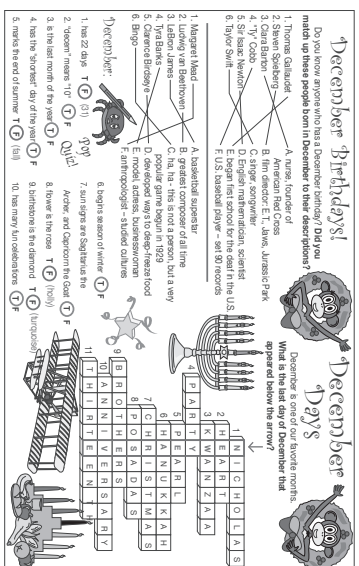 December Birthdays!
Do you know anyone who has a December birthday? Did you
match up these people born in December to their descriptions?
1. Thomas Gallaudet
2. Steven Spielberg
3. Clara Barton
4. "Ty" Cobb
5. Sir Isaac Newton
6. Taylor Swift
A. nurse, founder of
American Red Cross
B. film director: E.T., Jaws, Jurassic Park
C. singer, songwriter
D. English mathematician, scientist
E. began first school for the deaf in the U.S.
F. U.S. baseball player – set 90 records
1. Margaret Mead
2. Ludwig van Beethoven
3. LeBron James
4. Tyra Banks
5. Clarence Birdseye
6. Bingo
A. basketball superstar
B. greatest composer of all time
C. ha, ha - this is not a person, but a very
popular game begun in 1929
D. developed ways to deep-freeze food
E. model, actress, businesswoman
F. anthropologist – studied cultures
December:
Pop
Quiz!
1. has 22 days T F (31)
2. "decem" means "10" T F
3. is the last month of the year T F
4. has the "shortest" day of the year T F
5. marks the end of summer T F (fall)
6. begins season of winter T F
7. sun signs are Sagittarius the
Archer, and Capricorn the Goat T F
8. flower is the rose T F (holly)
9. birthstone is the diamond T F (turquoise)
10. has many fun celebrations T F
December
Days
December is one of our favorite months.
What is the last day of December that
appeared below the arrow?
1 NICHOLAS
2 HEART
3 KWANZAA
4 PARTY
5 PEARL
6 HANUKKAH
7 CHRISTMAS
8 POSADAS
9 BROTHERS
10 ANNIVERSARY
11 THIRTEENTH